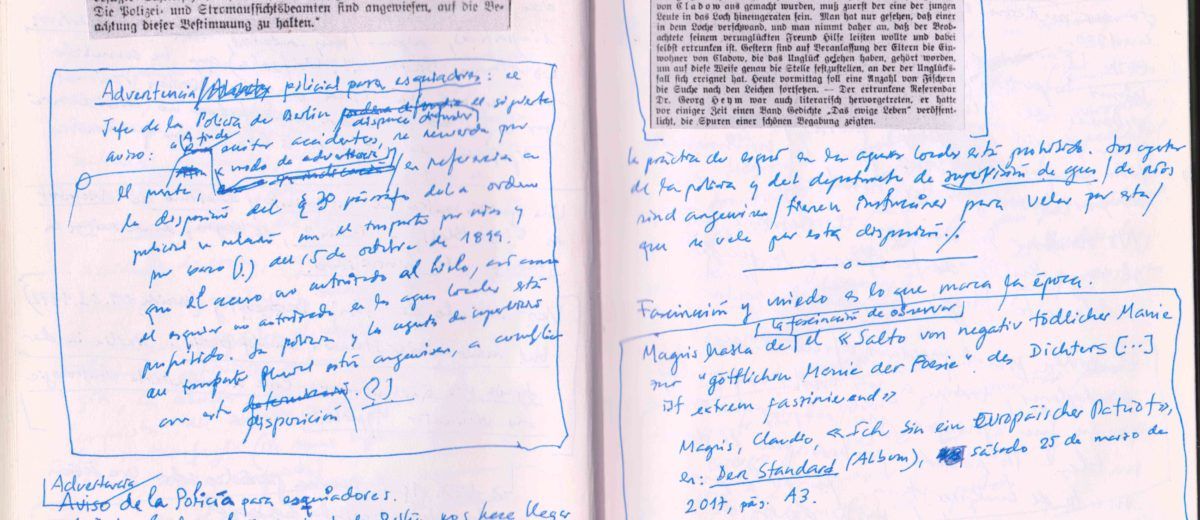 Die Polizei- und Stromaufsichtsbeamten sind angewiesen, auf die Be-
achtung dieser Bestimmung zu halten."
Advertencia / policial para esquiadores: el
Jefe de la Policía de Berlín dispuso difundir el siguiente
aviso: "A fin de evitar accidentes, se recuerda por
el presente a modo de advertencia, en referencia a
la disposición del § 30 párrafo de la orden
policial en relación con el transporte por ríos y
por barco (?) del 15 de octubre de 1899.
que el acceso no autorizado al hielo, así como
el esquiar no autorizado en las aguas locales está
prohibido. La policía y los agentes de supervisión
en transporte fluvial están angewiesen, a cumplir
con esta determinación. [?]
disposición
Advertencia
Aviso de la Policía para esquiadores.
nos hace llegar
von Cladow aus gemacht wurden, muß zuerst der eine der jungen
Leute in das Loch hineingeraten sein. Man hat nur gesehen, daß einer
in dem Loche verschwand, und man nimmt daher an, daß der Beob-
achtete seinem verunglückten Freund Hilfe leisten wollte und dabei
selbst ertrunken ist. Gestern sind auf Veranlassung der Eltern die Ein-
wohner von Cladow, die das Unglück gesehen haben, gehört worden,
um auf diese Weise genau die Stelle festzustellen, an der der Unglücks-
fall sich ereignet hat. Heute vormittag soll eine Anzahl von Fischern
die Suche nach den Leichen fortsetzen. — Der ertrunkene Referendar
Dr. Georg Heym war auch literarisch hervorgetreten, er hatte
vor einiger Zeit einen Band Gedichte „Das ewige Leben" veröffent-
licht, die Spuren einer schönen Begabung zeigten.
la práctica de esquí en las aguas locales está prohibido. Los agentes
de la policía y del departamento de supervisión de aguas / de ríos
sind angewiesen / tienen instrucciones para velar por esta /
que se vele por esta disposición /.
Fascinación y miedo es lo que marca la época.
la fascinación de observar
Magris habla de el «Salto von negativ tödlicher Manie
zur "göttlichen Manie der Poesie". des Dichters [...]
ist extrem faszinierend»
Magris, Claudio, «Ich bin ein Europäischer Patriot»,
en: Der Standard (Album), sábado 25 de marzo de
2017, pág. A3.